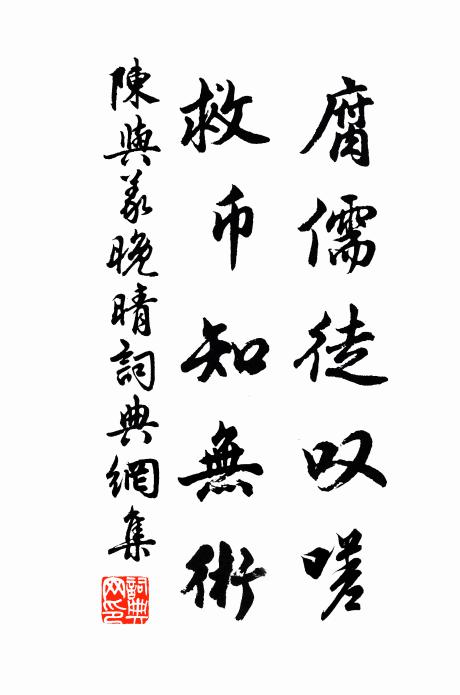 腐儒徒叹嗟
救币知無術
陳與義晚晴詞典網集
詞典網印